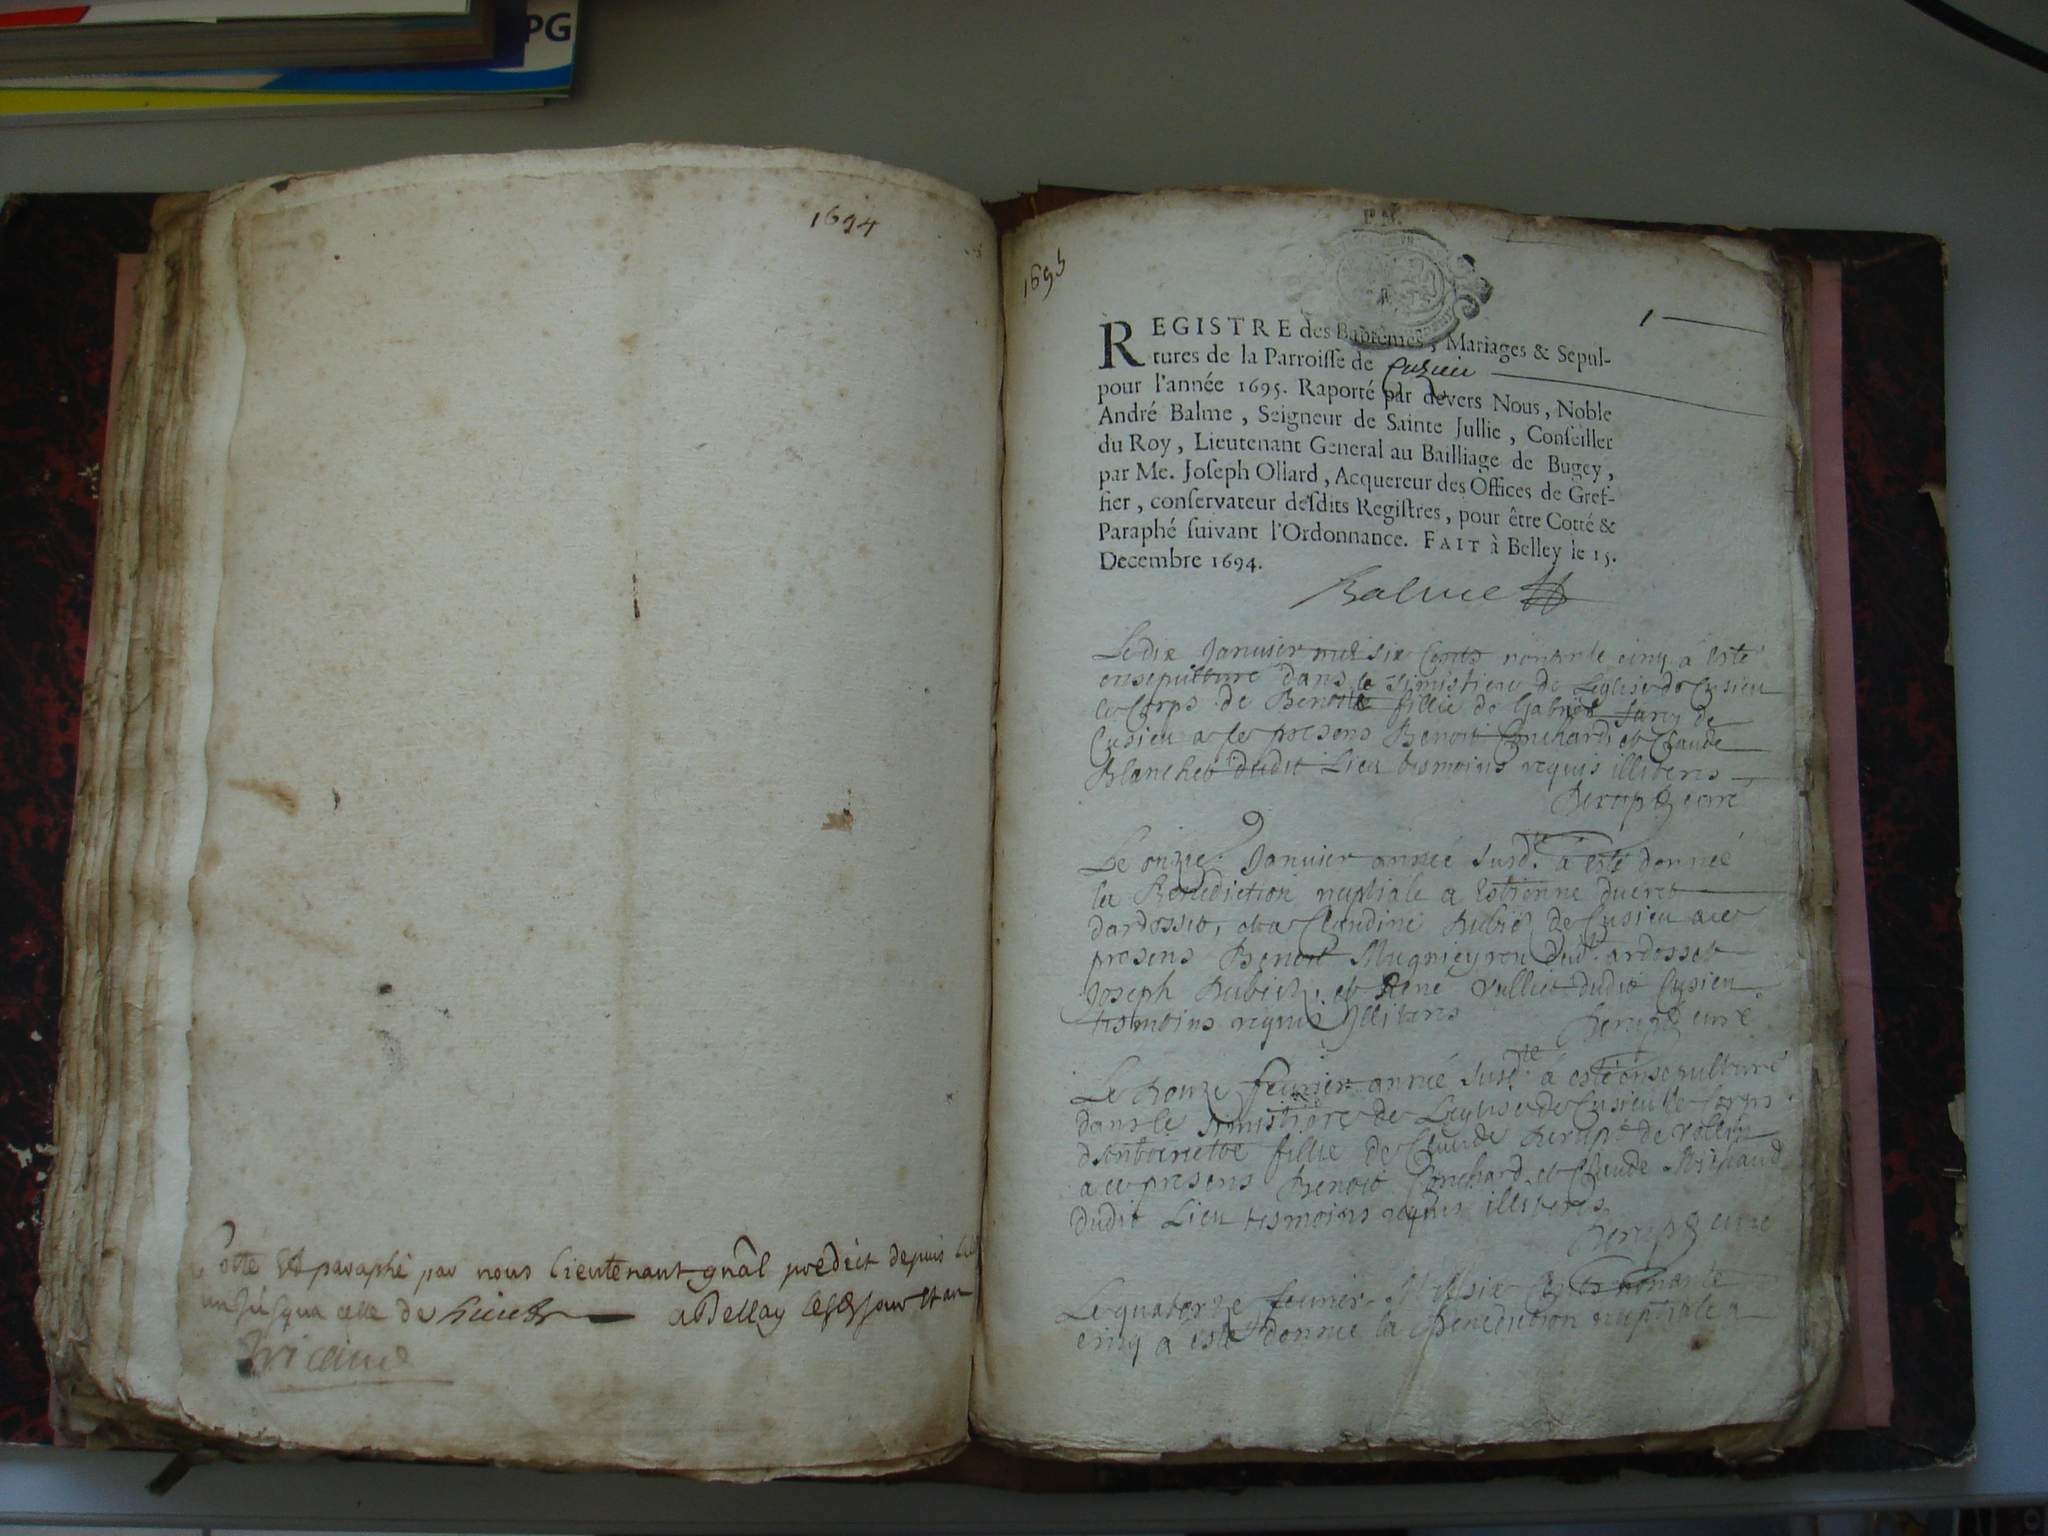 PG
1694
Cotté Et paraphé par nous Lieutenant gnâl predict depuis
un jusqua celle de huict a Bellay
1695
1
REGISTRE des Baptêmes, Mariages & Sepul-
tures de la Parroisse de Cuzieu
pour l'année 1695. Raporté par devers Nous, Noble
André Balme, Seigneur de Sainte Jullie, Conseiller
du Roy, Lieutenant General au Bailliage de Bugey,
par Me. Joseph Ollard, Acquereur des Offices de Gref-
fier, conservateur desdits Registres, pour être Cotté &
Paraphé suivant l'Ordonnance. FAIT à Belley le 15.
Decembre 1694.
Balme
Le dix Janvier mil six Cents nonante cinq a Esté
ensepulturé dans le simistiere de Leglise de Cusieu
le Corps de Benoite fillie de Gabriel de
Cusieu a ce presens Benoit Conchard et Claude
Blanchet dudit Lieu tesmoins requis illiteres
curé
Le onzie. Janvier année susd.te a esté donnée
la Benediction nuptiale a Estienne
dardosset, et a Claudine Rubis de Cusieu a ce
presens Benoit Mugnieyren dud.t ardosset
Joseph Rubis, et René Vulliet dudit Cusieu
tesmoins requis Illiteres curé
Le fevrier année susd.te a esté ensepulturé
dans le simistiere de Leglise de Cusieu le Corps
fillie de Claude de
a ce presens Benoit Conchard et Claude
dudit Lieu tesmoins requis illiteres
curé
Le quatorze fevrier Mil six Cents nonante
cinq a esté donnee la Benediction nuptiale a